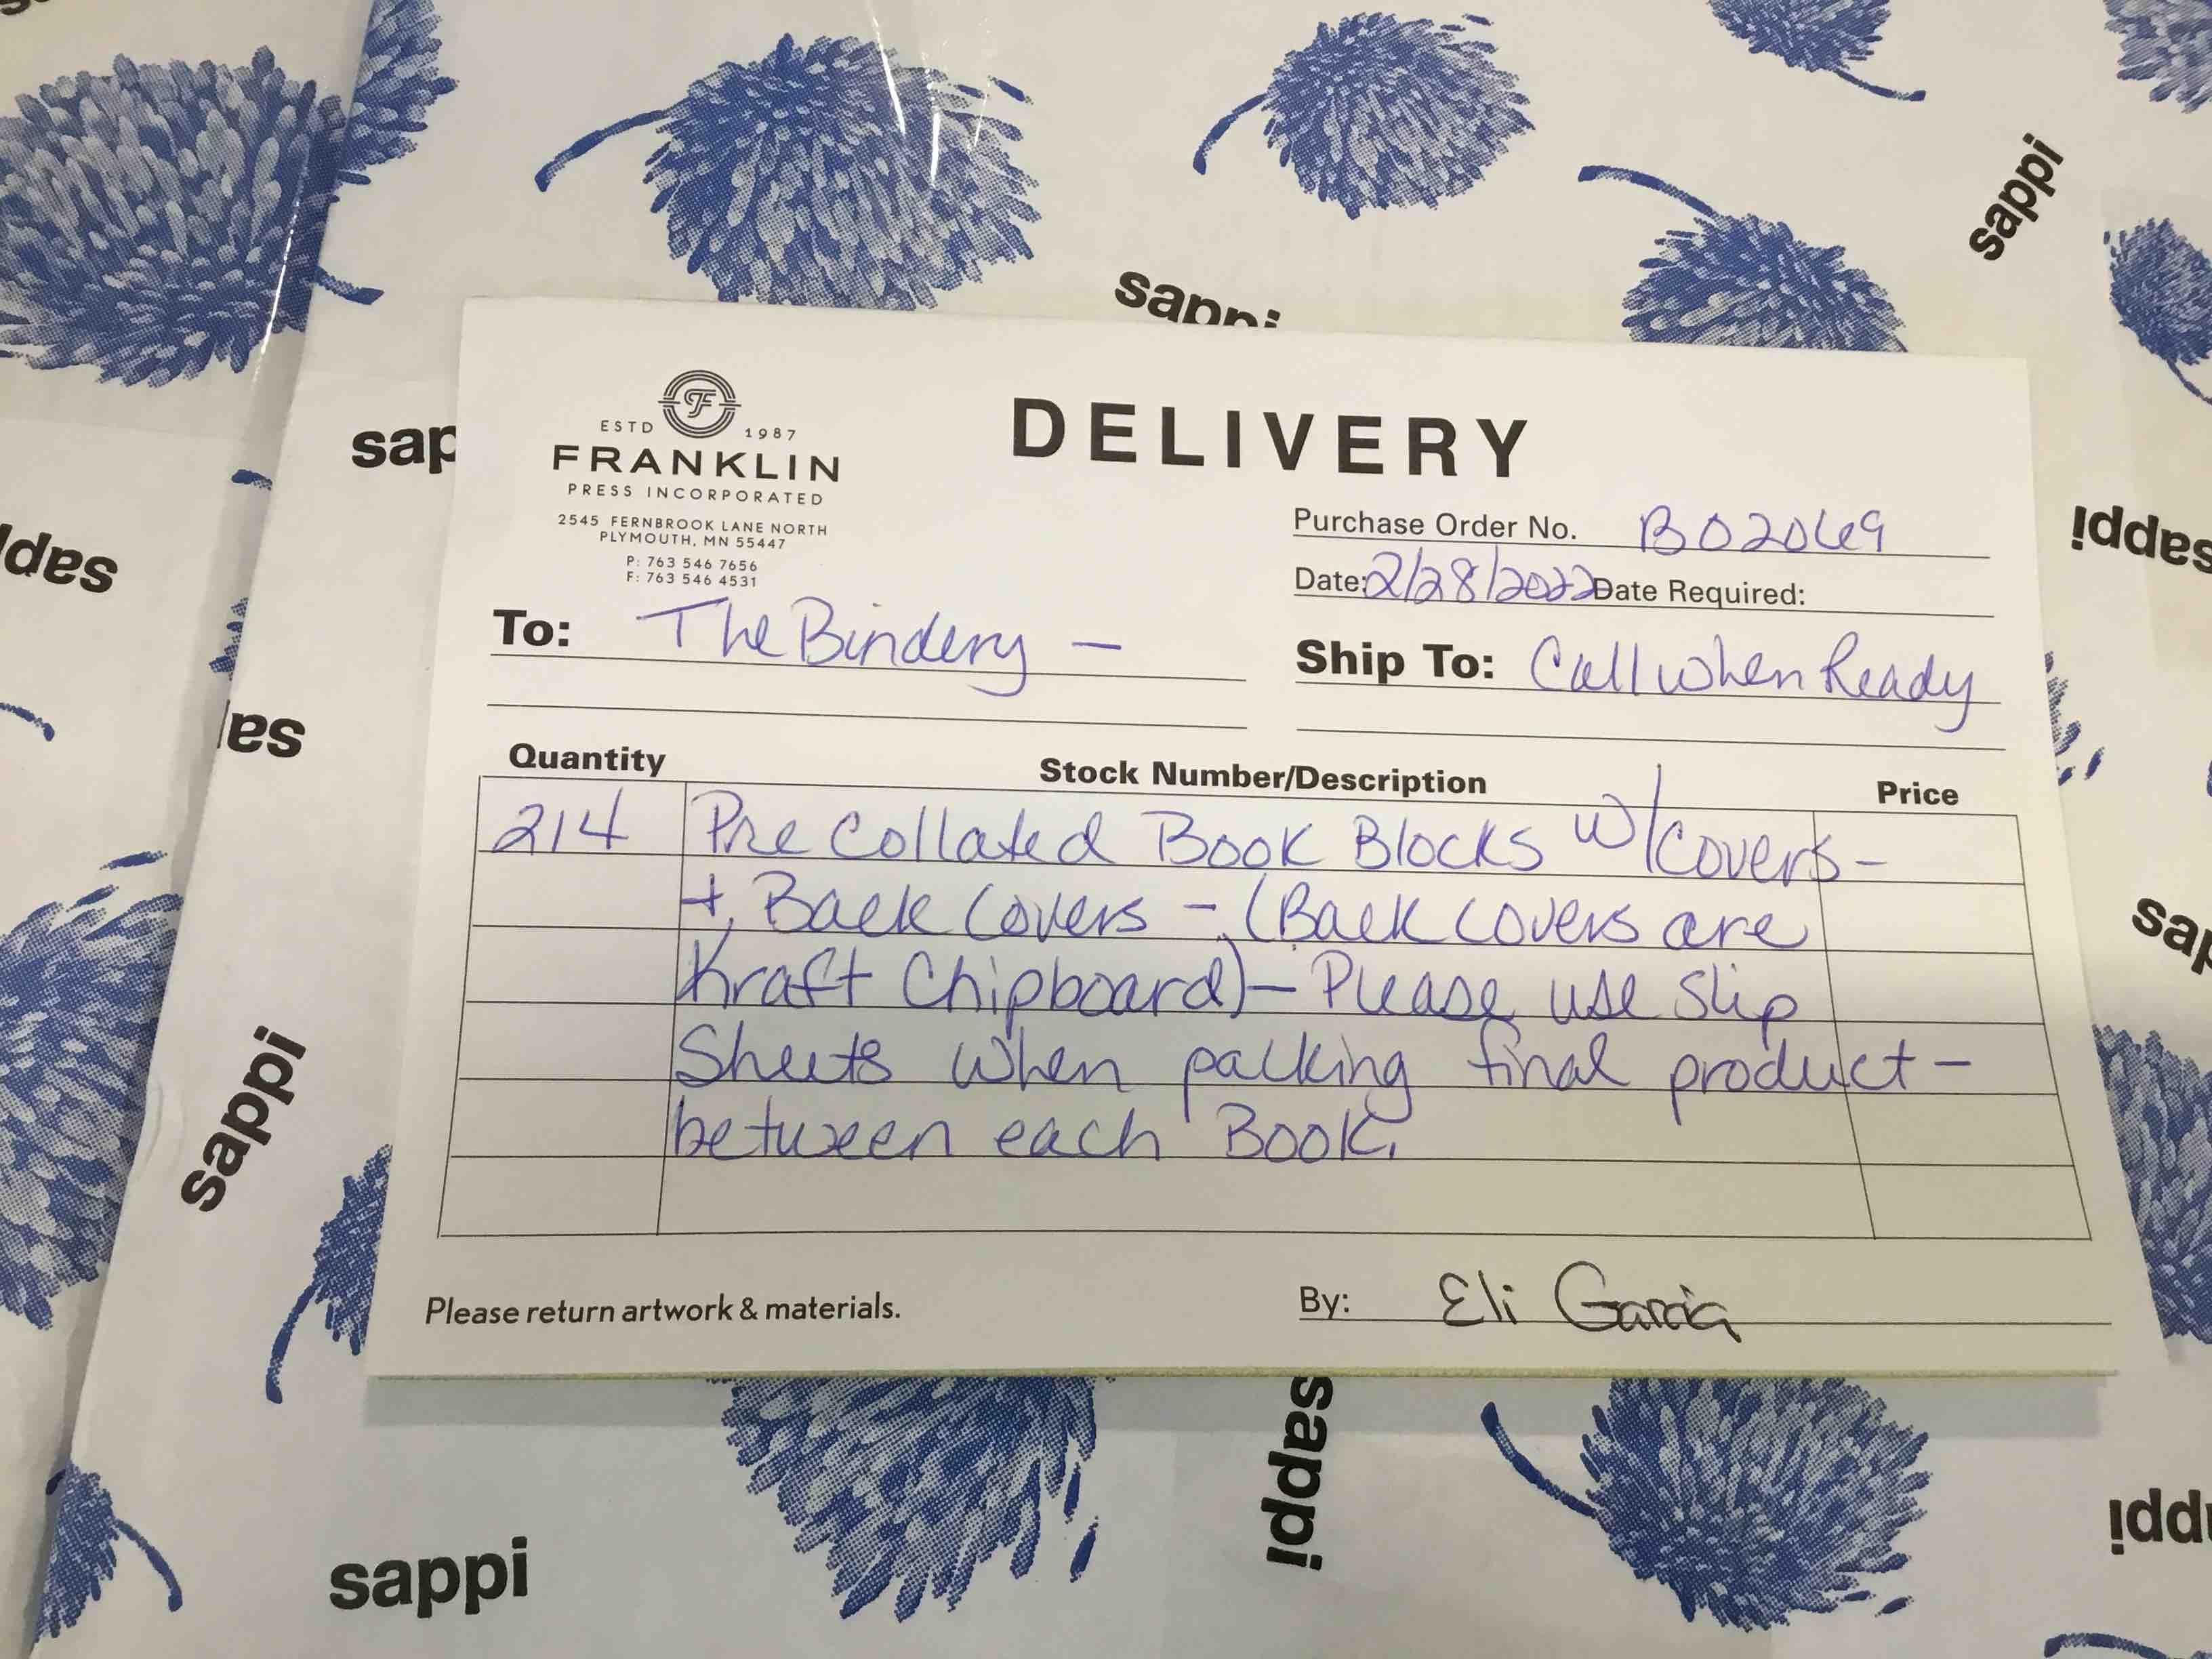 sappi
sappi
ESTD 1987
FRANKLIN
PRESS INCORPORATED
2545 FERNBROOK LANE NORTH
PLYMOUTH, MN 55447
P: 763 546 7656
F: 763 546 4531
DELIVERY
Purchase Order No. B02069
Date: 2/28/2022 Date Required:
To: The Bindery –
Ship To: Call when Ready
Quantity Stock Number/Description Price
214 Pre Collated Book Blocks w/covers –
+ Back Covers – (Back covers are
Kraft Chipboard) – Please use slip
Sheets when packing final product –
between each Book.
Please return artwork & materials.
By: Eli Garcia
sap
sappi
sappi
sap
sappi
sap
sappi
sappi
ppi
sappi